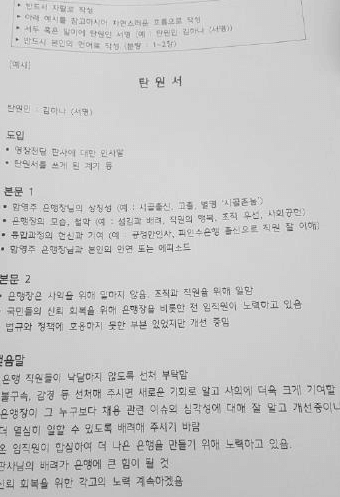 • 반드시 자필로 작성
• 아래 예시를 참고하시어 자연스러운 흐름으로 작성
• 서두 혹은 말미에 탄원인 서명 (예 : 탄원인 김하나 (서명))
• 반드시 본인의 언어로 작성 (분량 : 1~2장)
[예시]
탄 원 서
탄원인 : 김하나 (서명)
도입
• 영장전담 판사에 대한 인사말
• 탄원서를 쓰게 된 계기 등
본문 1
• 함영주 은행장님의 상징성 (예 : 시골출신, 고졸, 별명 '시골촌놈')
• 은행장의 모습, 철학 (예 : 섬김과 배려, 직원의 행복, 조직 우선, 사회공헌)
• 통합과정의 헌신과 기여 (예 : 공정한인사, 피인수은행 출신으로 직원 잘 이해)
• 함영주 은행장님과 본인의 인연 또는 에피소드
본문 2
• 은행장은 사익을 위해 일하지 않음. 조직과 직원을 위해 일함
국민들의 신뢰 회복을 위해 은행장을 비롯한 전 임직원이 노력하고 있음
법규와 정책에 호응하지 못한 부분 있었지만 개선 중임
맺음말
은행 직원들이 낙담하지 않도록 선처 부탁함
불구속, 감경 등 선처해 주시면 새로운 기회로 알고 사회에 더욱 크게 기여할
은행장이 그 누구보다 채용 관련 이슈의 심각성에 대해 잘 알고 개선중이니
더 열심히 일할 수 있도록 배려해 주시기 바람
온 임직원이 합심하여 더 나은 은행을 만들기 위해 노력하고 있음.
판사님의 배려가 은행에 큰 힘이 될 것
신뢰 회복을 위한 각고의 노력 계속하겠음